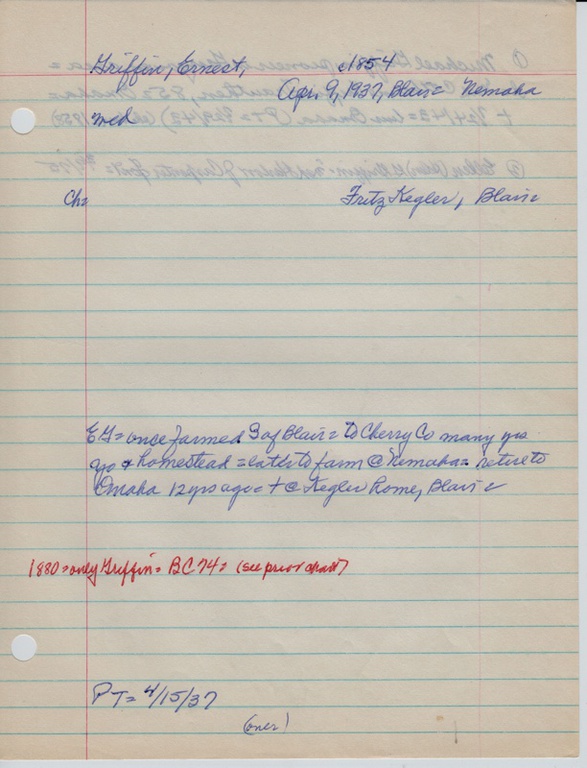 Griffin, Ernest, c1854
Apr. 9, 1937, Blair= Nemaha
wed
Ch= Fritz Kegler, Blair=
EG= once farmed S of Blair= to Cherry Co many yrs
ago & homestead = later to farm @ Nemaha= retire to
Omaha 12 yrs ago= + @ Kegler home, Blair=
1880= only Griffin= BC 74= (see prior chart)
PT= 4/15/37
(over)